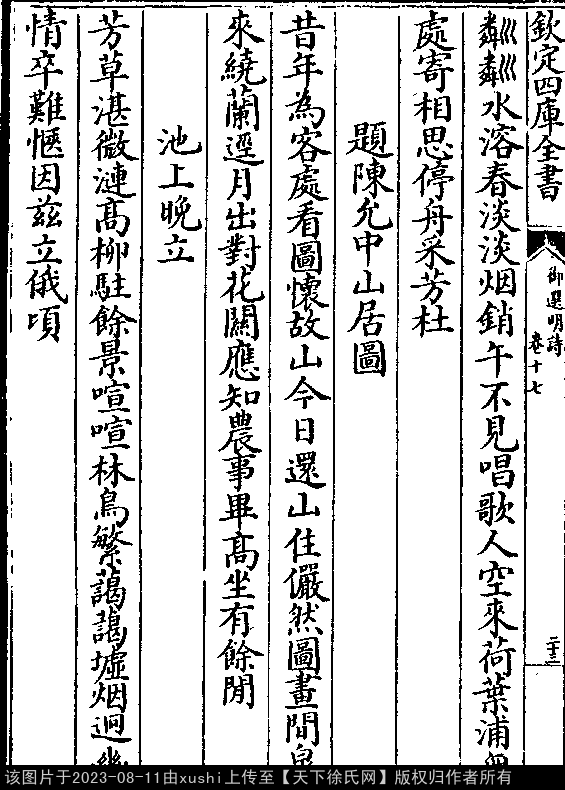 欽定四庫全書
御選明詩
卷十七
二十三
粼粼水溶春淡淡烟銷午不見唱歌人空來荷葉浦
處寄相思停舟采芳杜
題陳允中山居圖
昔年為客處看圖懷故山今日還山住儼然圖畫間
來繞蘭逕月出對花關應知農事畢高坐有餘閒
池上晚立
芳草湛微漣高柳駐餘景喧喧林鳥繁藹藹墟烟迥
情卒難愜因茲立俄頃
该图片于2023-08-11由xushi上传至【天下徐氏网】版权归作者所有